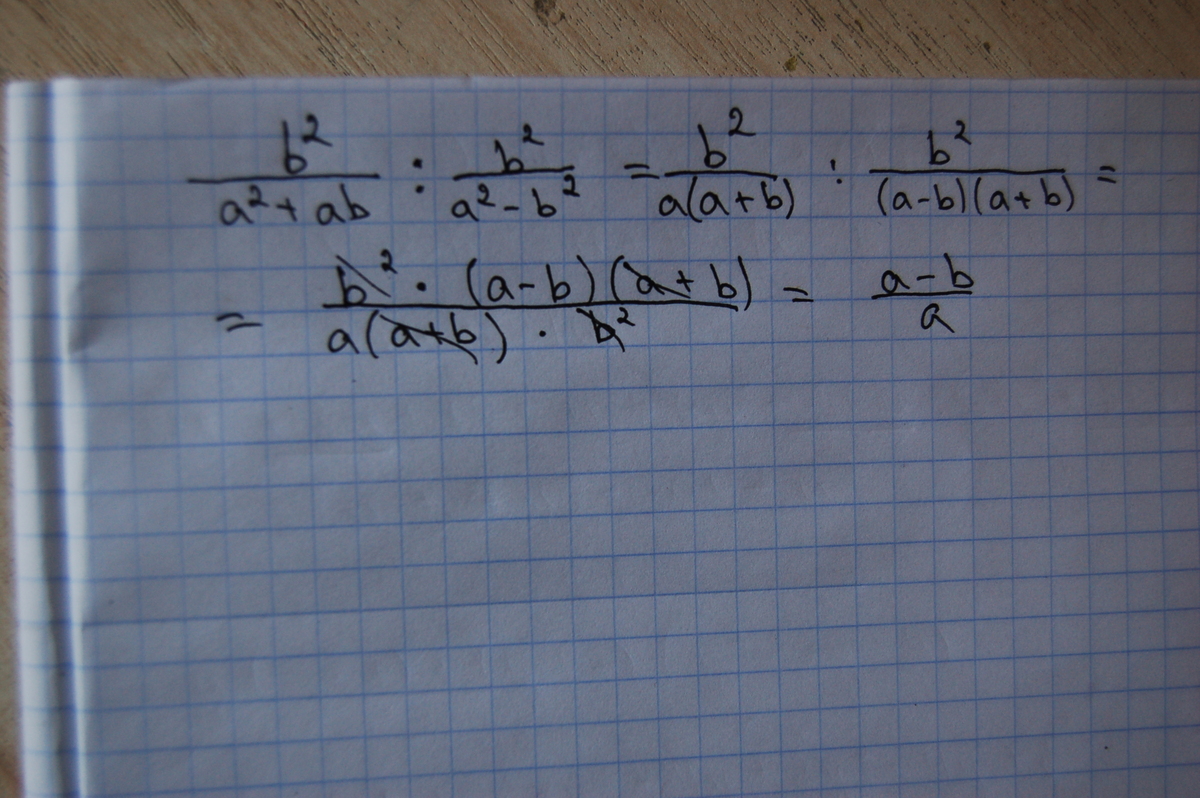 b²/(a² + ab) : b²/(a² - b²) = b²/(a(a + b)) : b²/((a - b)(a + b)) =
= (b² · (a - b)(a + b))/(a(a + b) · b²) = (a - b)/a